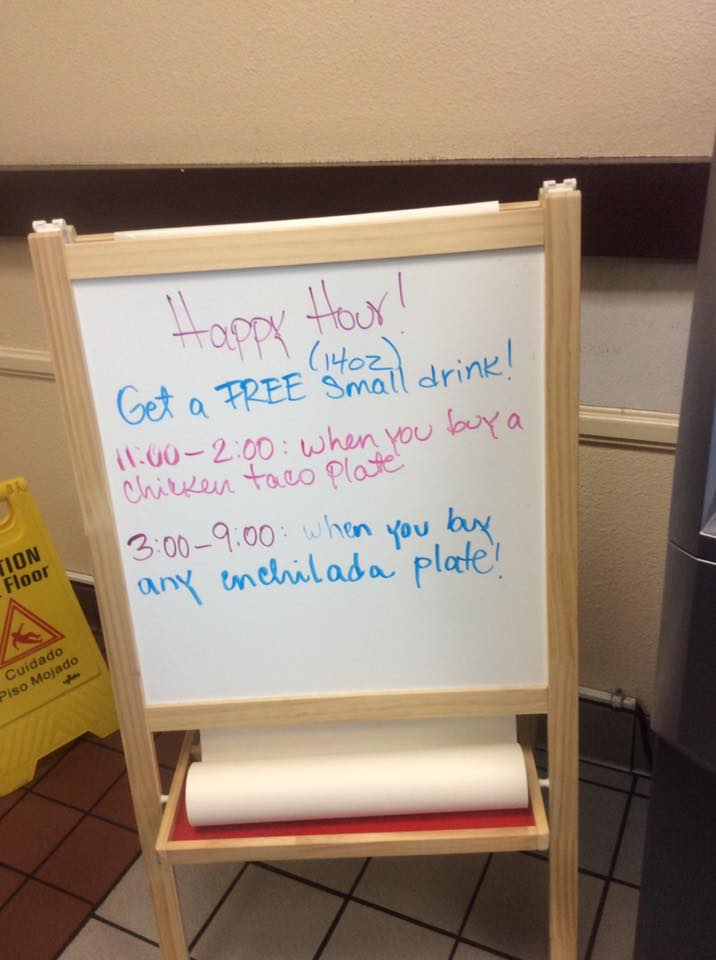 Happy Hour!
(14oz)
Get a FREE Small drink!
11:00-2:00: when you buy a
chicken taco plate
3:00-9:00: when you buy
any enchilada plate!
TION
Floor
Cuidado
Piso Mojado